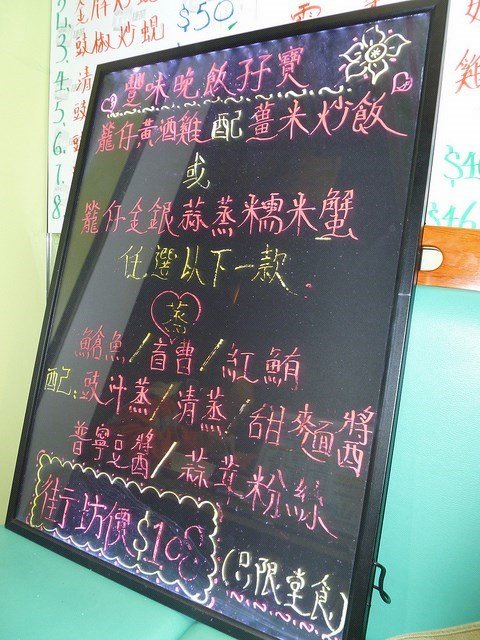 2. 金
3. 豉椒炒蜆
$50
4. 清
5. 豉
6.
7.
8.
雞
$4
$46
豐味晚飯孖寶
籠仔黃酒雞配薑米炒飯
或
籠仔金銀蒜蒸糯米蟹
任選以下一款
蒸
鯧魚/盲曹/紅鮋
配:豉汁蒸/清蒸/甜麵醬
普寧豆醬/蒜茸粉絲
街坊價$108(只限堂食)